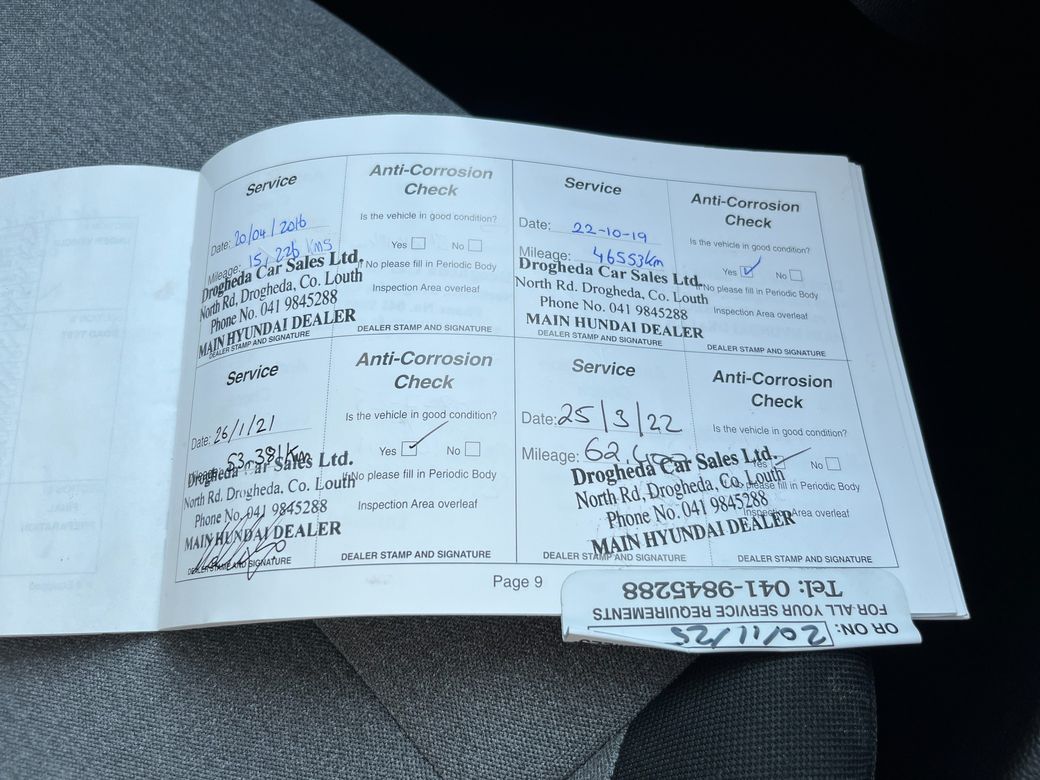 Service
Date: 20/04/2016
Mileage: 15,226 kms
Drogheda Car Sales Ltd.
North Rd, Drogheda, Co. Louth
Phone No. 041 9845288
MAIN HYUNDAI DEALER
DEALER STAMP AND SIGNATURE
Anti-Corrosion
Check
Is the vehicle in good condition?
Yes No
No please fill in Periodic Body
Inspection Area overleaf
DEALER STAMP AND SIGNATURE
Service
Date: 22-10-19
Mileage: 46553km
Drogheda Car Sales Ltd.
North Rd, Drogheda, Co. Louth
Phone No. 041 9845288
MAIN HUNDAI DEALER
DEALER STAMP AND SIGNATURE
Anti-Corrosion
Check
Is the vehicle in good condition?
Yes No
No please fill in Periodic Body
Inspection Area overleaf
DEALER STAMP AND SIGNATURE
Service
Date: 26/1/21
Mileage: 53,381km
Drogheda Car Sales Ltd.
North Rd, Drogheda, Co. Louth
Phone No. 041 9845288
MAIN HUNDAI DEALER
DEALER STAMP AND SIGNATURE
Anti-Corrosion
Check
Is the vehicle in good condition?
Yes No
No please fill in Periodic Body
Inspection Area overleaf
DEALER STAMP AND SIGNATURE
Service
Date: 25/3/22
Mileage:
Drogheda Car Sales Ltd.
North Rd, Drogheda, Co. Louth
Phone No. 041 9845288
MAIN HYUNDAI DEALER
DEALER STAMP AND SIGNATURE
Anti-Corrosion
Check
Is the vehicle in good condition?
Yes No
please fill in Periodic Body
Inspection Area overleaf
DEALER STAMP AND SIGNATURE
Page 9
OR ON: 20/11/25
FOR ALL YOUR SERVICE REQUIREMENTS
Tel: 041-9845288